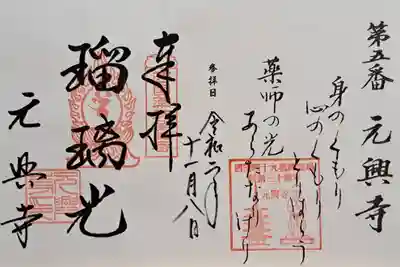 第五番 元興寺
身のくもり
心のくもり
とりはらう
薬師の光
あらたなりけり
参拝日 令和二年
十一月八日
奉拝
瑠璃光
元興寺